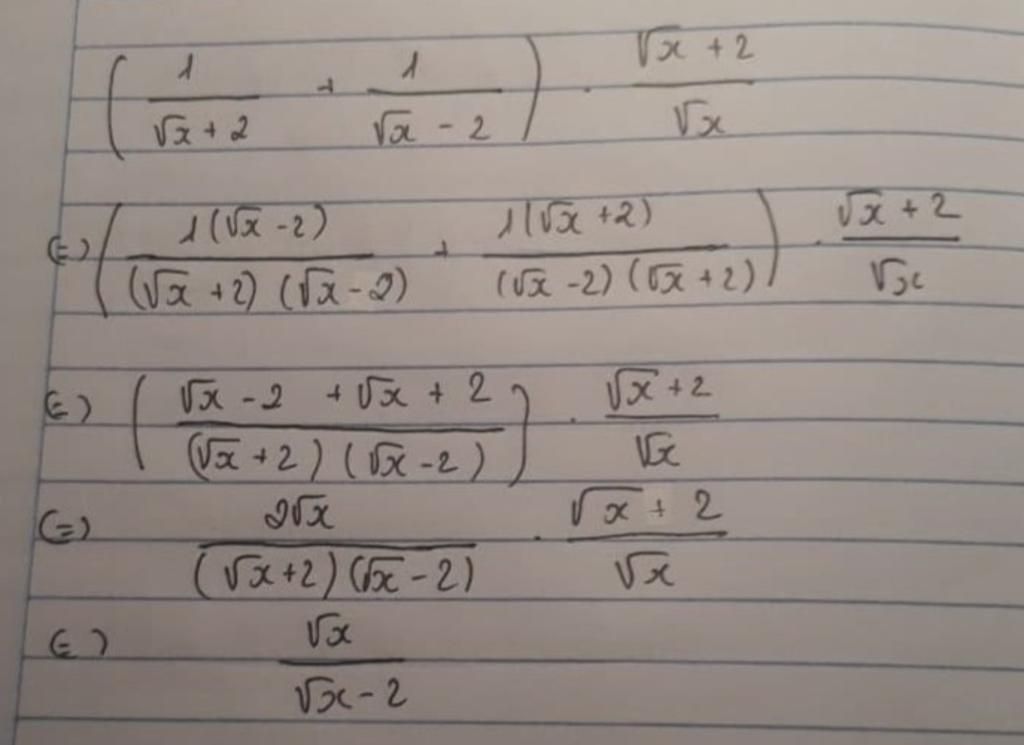 (1/(√x + 2) + 1/(√x - 2)) · (√x + 2)/√x
(=) (1(√x - 2)/((√x + 2)(√x - 2)) + 1(√x + 2)/((√x - 2)(√x + 2))) · (√x + 2)/√x
(=) ((√x - 2 + √x + 2)/((√x + 2)(√x - 2))) · (√x + 2)/√x
(=) 2√x/((√x + 2)(√x - 2)) · (√x + 2)/√x
(=) √x/(√x - 2)